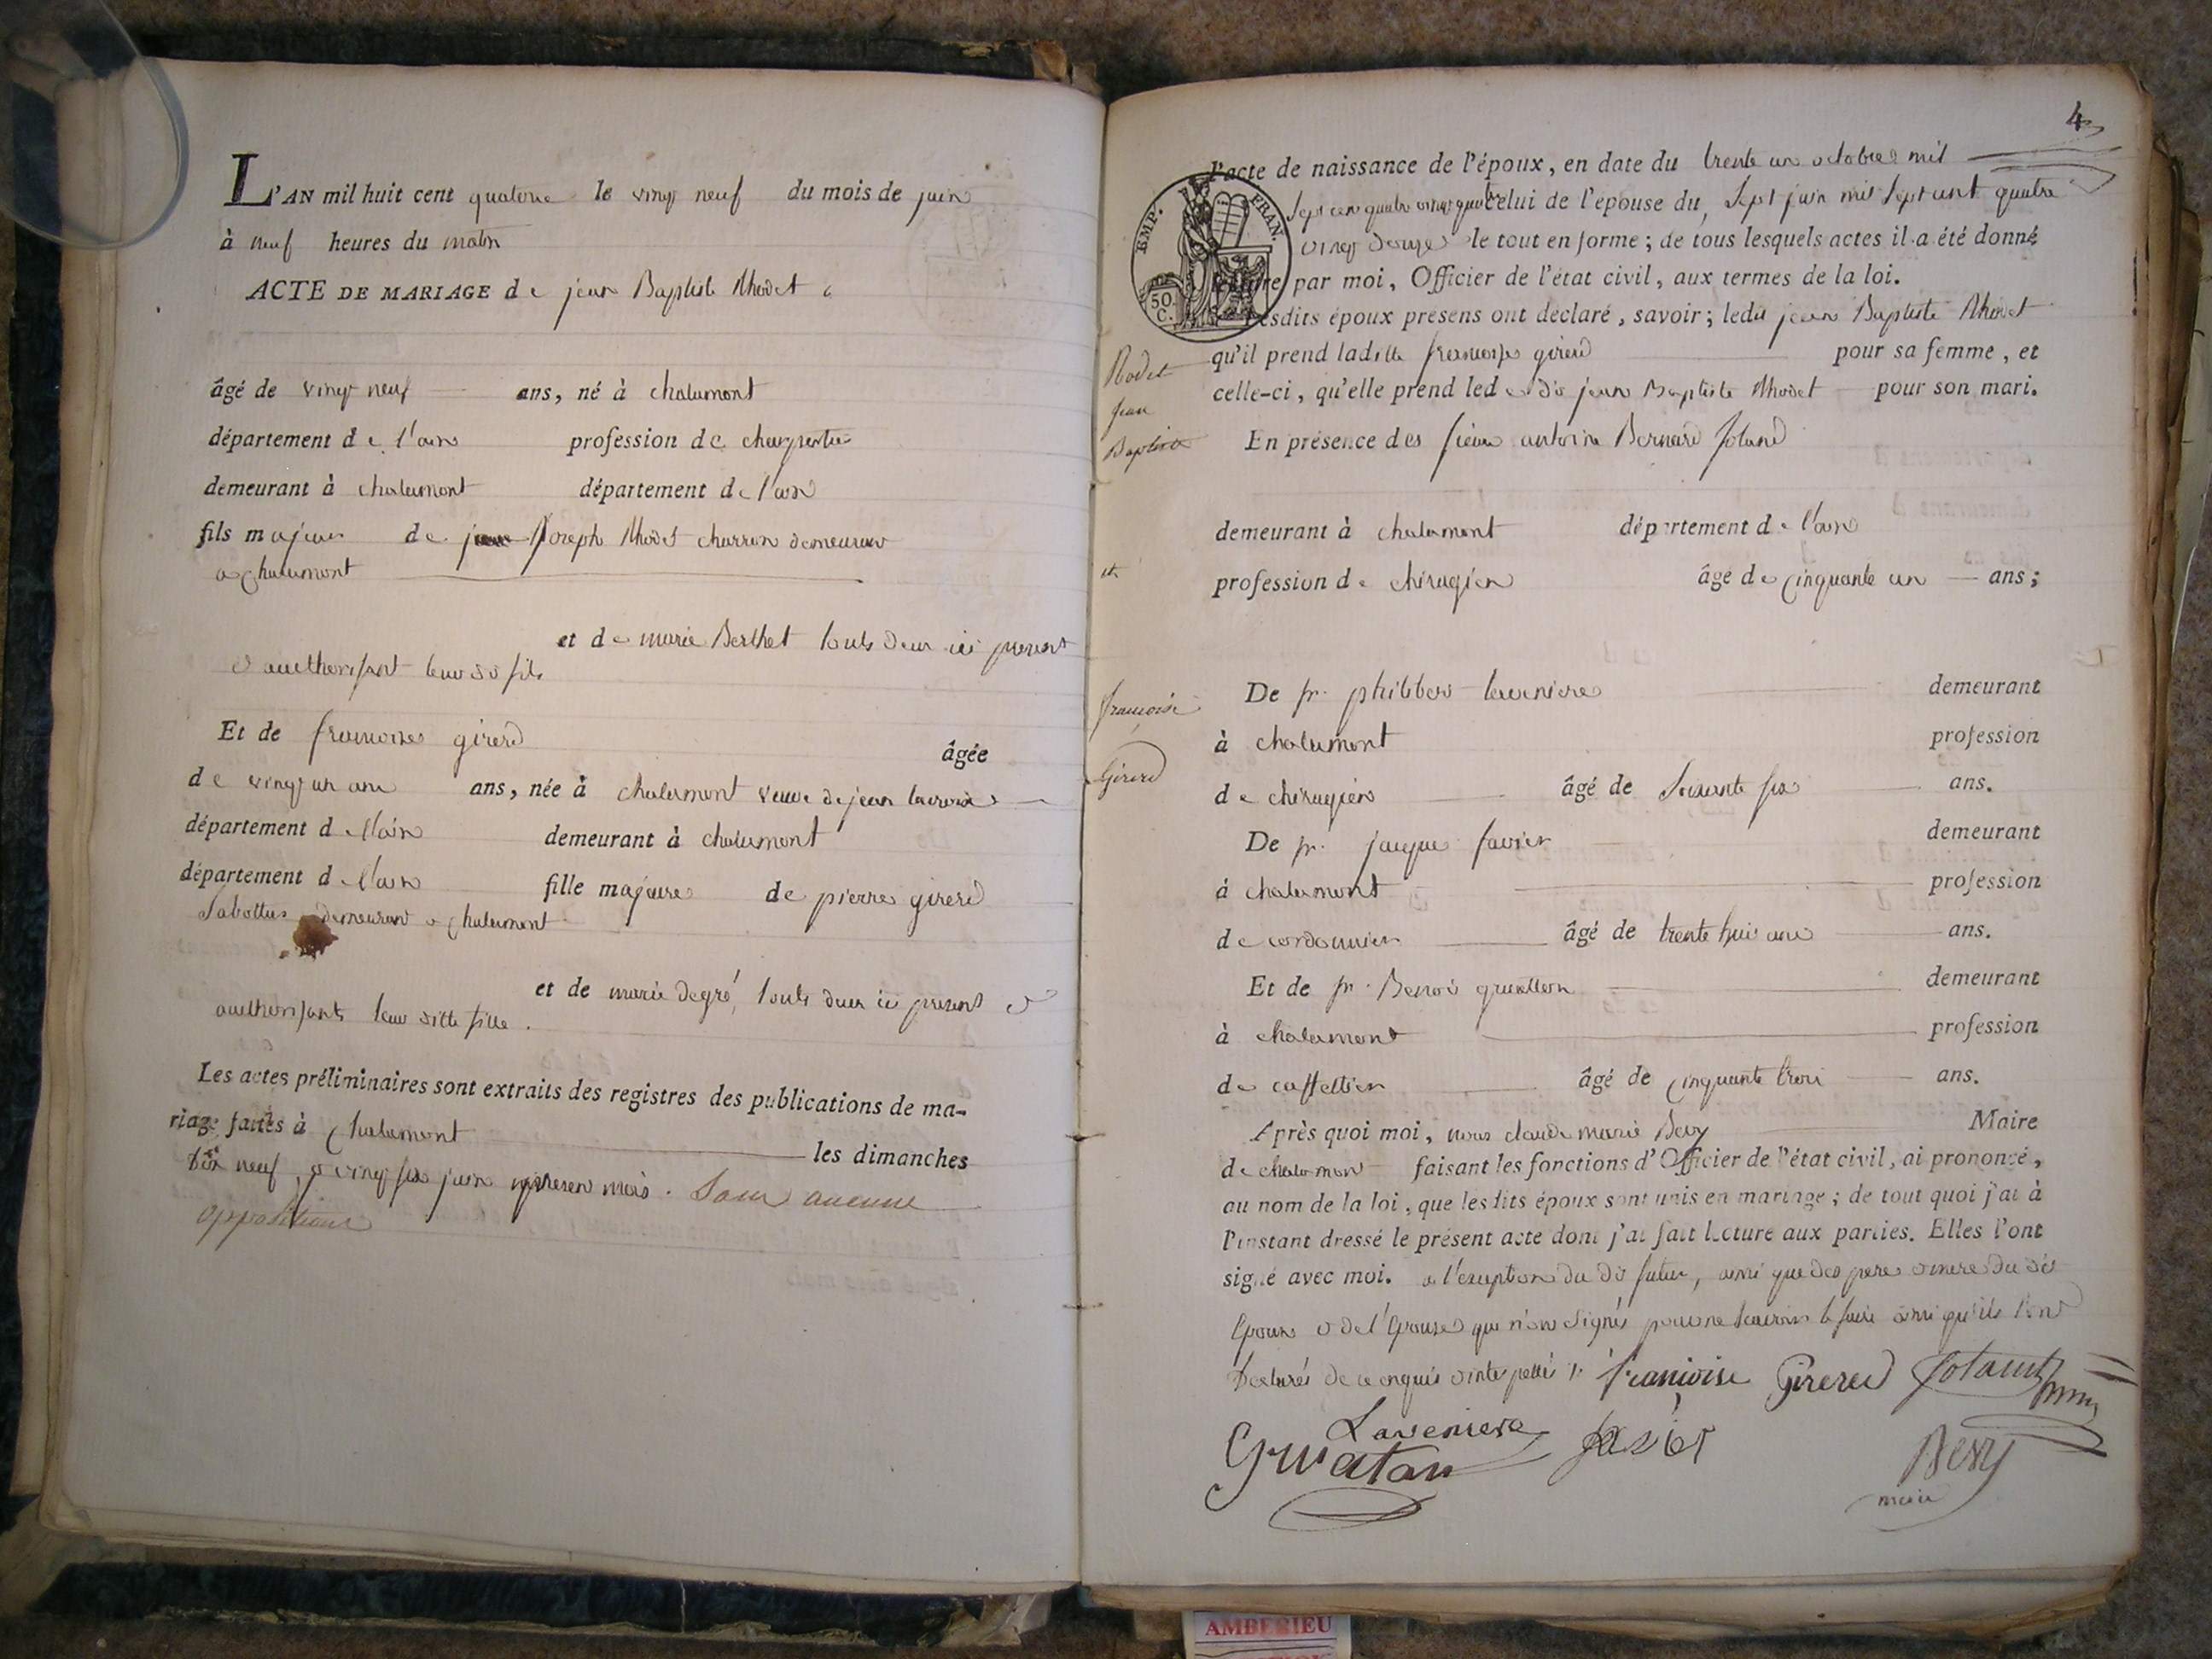 L'AN mil huit cent quatorze le vingt neuf du mois de juin
à neuf heures du matin
ACTE DE MARIAGE de jean Baptiste Rhodet
âgé de vingt neuf ans, né à chalamont
département de l'ain profession de charpentier
demeurant à chalamont département de l'ain
fils majeur de Joseph Rhodet charron demeurant
a chalamont
et de marie Berthet touts deux ici present
authorisant leur dit fils
Et de francoise girerd âgée
de vingt un ans ans, née à chalamont veuve de jean lacroix
département de l'ain demeurant à chalamont
département de l'ain fille majeure de pierre girerd
Sabottier demeurant a chalamont
et de marie degré, touts deux ici present et
authorisants leur ditte fille.
Les actes préliminaires sont extraits des registres des publications de ma-
riage faites à Chalamont les dimanches
dix neuf, et vingt six juin present mois. Sans aucune
oppositions
4
EMP. FRAN.
50.
C.
l'acte de naissance de l'époux, en date du trente un octobre mil
Sept cent quatre vingt quatre celui de l'épouse du Sept juin mil Sept cent quatre
vingt douze le tout en forme; de tous lesquels actes il a été donné
lecture par moi, Officier de l'état civil, aux termes de la loi.
Lesdits époux présens ont déclaré, savoir; ledit jean Baptiste Rhodet
qu'il prend laditte francoise girerd pour sa femme, et
celle-ci, qu'elle prend led dit jean Baptiste Rhodet pour son mari.
Rodet
Jean
Baptiste
et
francoise
Girerd
En présence des sieurs antoine Bernard Joland
demeurant à chalamont département de l'ain
profession de chirugien âgé de cinquante un ans;
De sr. philibert laveniere demeurant
à chalamont profession
de chirugien âgé de Soixante six ans.
De sr. jacque favier demeurant
à chalamont profession
de cordonnier âgé de trente huit ans ans.
Et de sr. Benoit demeurant
à chalamont profession
de caffettier âgé de cinquante trois ans.
Après quoi moi, nous claude marie Bevy Maire
de chalamont faisant les fonctions d'Officier de l'état civil, ai prononcé,
au nom de la loi, que lesdits époux sont unis en mariage; de tout quoi j'ai à
l'instant dressé le présent acte dont j'ai fait lecture aux parties. Elles l'ont
signé avec moi. a l'exeption du dit futur, ainsi que des pere et mere du dit
Epoux et de l'Epouse qui n'ont signés pour ne scavoir le faire ainsi qu'ils l'ont
declarés de ce enquis
françoise Girerd
Laveniere favier
Gruatan Bevy
maire
AMBERIEU